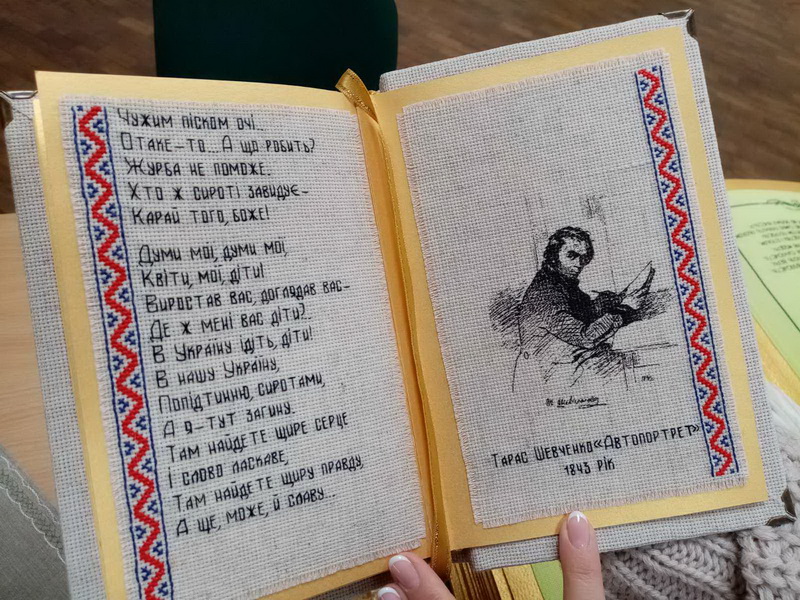 Чужим піском очі...
Отаке-то... А що робить?
Журба не поможе.
Хто ж сироті завидує–
Карай того, Боже!
Думи мої, думи мої,
Квіти мої, діти!
Виростав вас, доглядав вас–
Де ж мені вас діти?..
В Україну ідіть, діти!
В нашу Україну,
Попідтинню, сиротами,
А я–тут загину.
Там найдете щире серце
І слово ласкаве,
Там найдете щиру правду,
А ще, може, й славу...
Тарас Шевченко «Автопортрет»
1843 рік